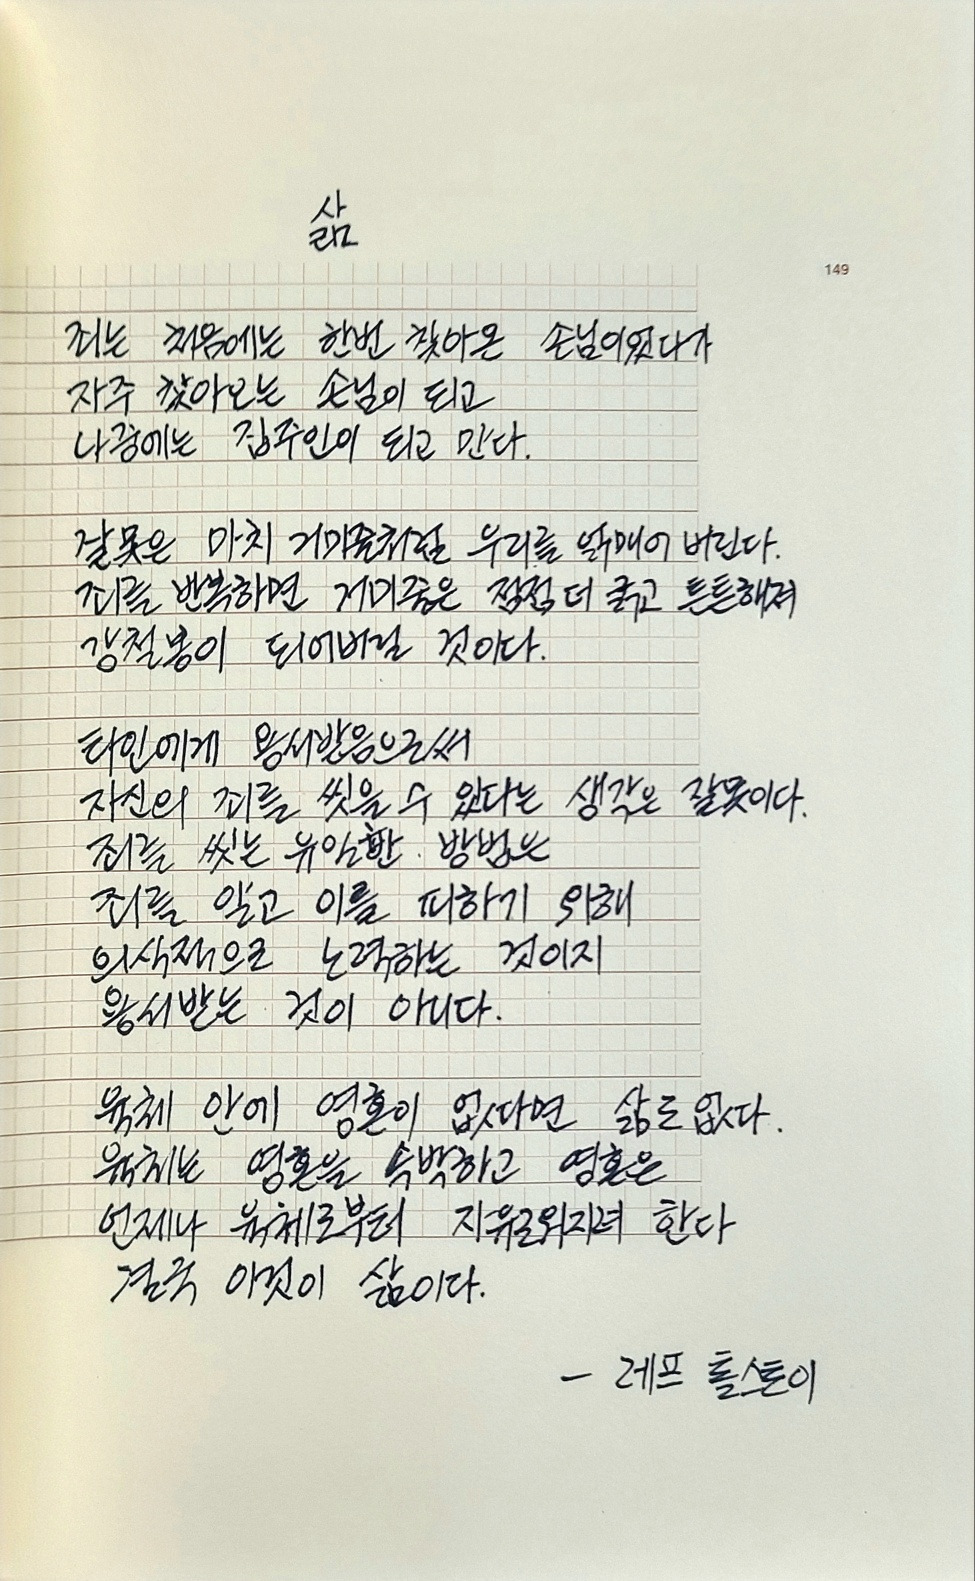 삶
149
죄는 처음에는 한번 찾아온 손님이었다가
자주 찾아오는 손님이 되고
나중에는 집주인이 되고 만다.
잘못은 마치 거미줄처럼 우리를 얽매어 버린다.
죄를 반복하면 거미줄은 점점 더 굵고 튼튼해져
강철봉이 되어버릴 것이다.
타인에게 용서받음으로써
자신의 죄를 씻을 수 있다는 생각은 잘못이다.
죄를 씻는 유일한 방법은
죄를 알고 이를 피하기 위해
의식적으로 노력하는 것이지
용서받는 것이 아니다.
육체 안에 영혼이 없다면 삶도 없다.
육체는 영혼을 속박하고 영혼은
언제나 육체로부터 자유로워지려 한다
결국 이것이 삶이다.
- 레프 톨스토이